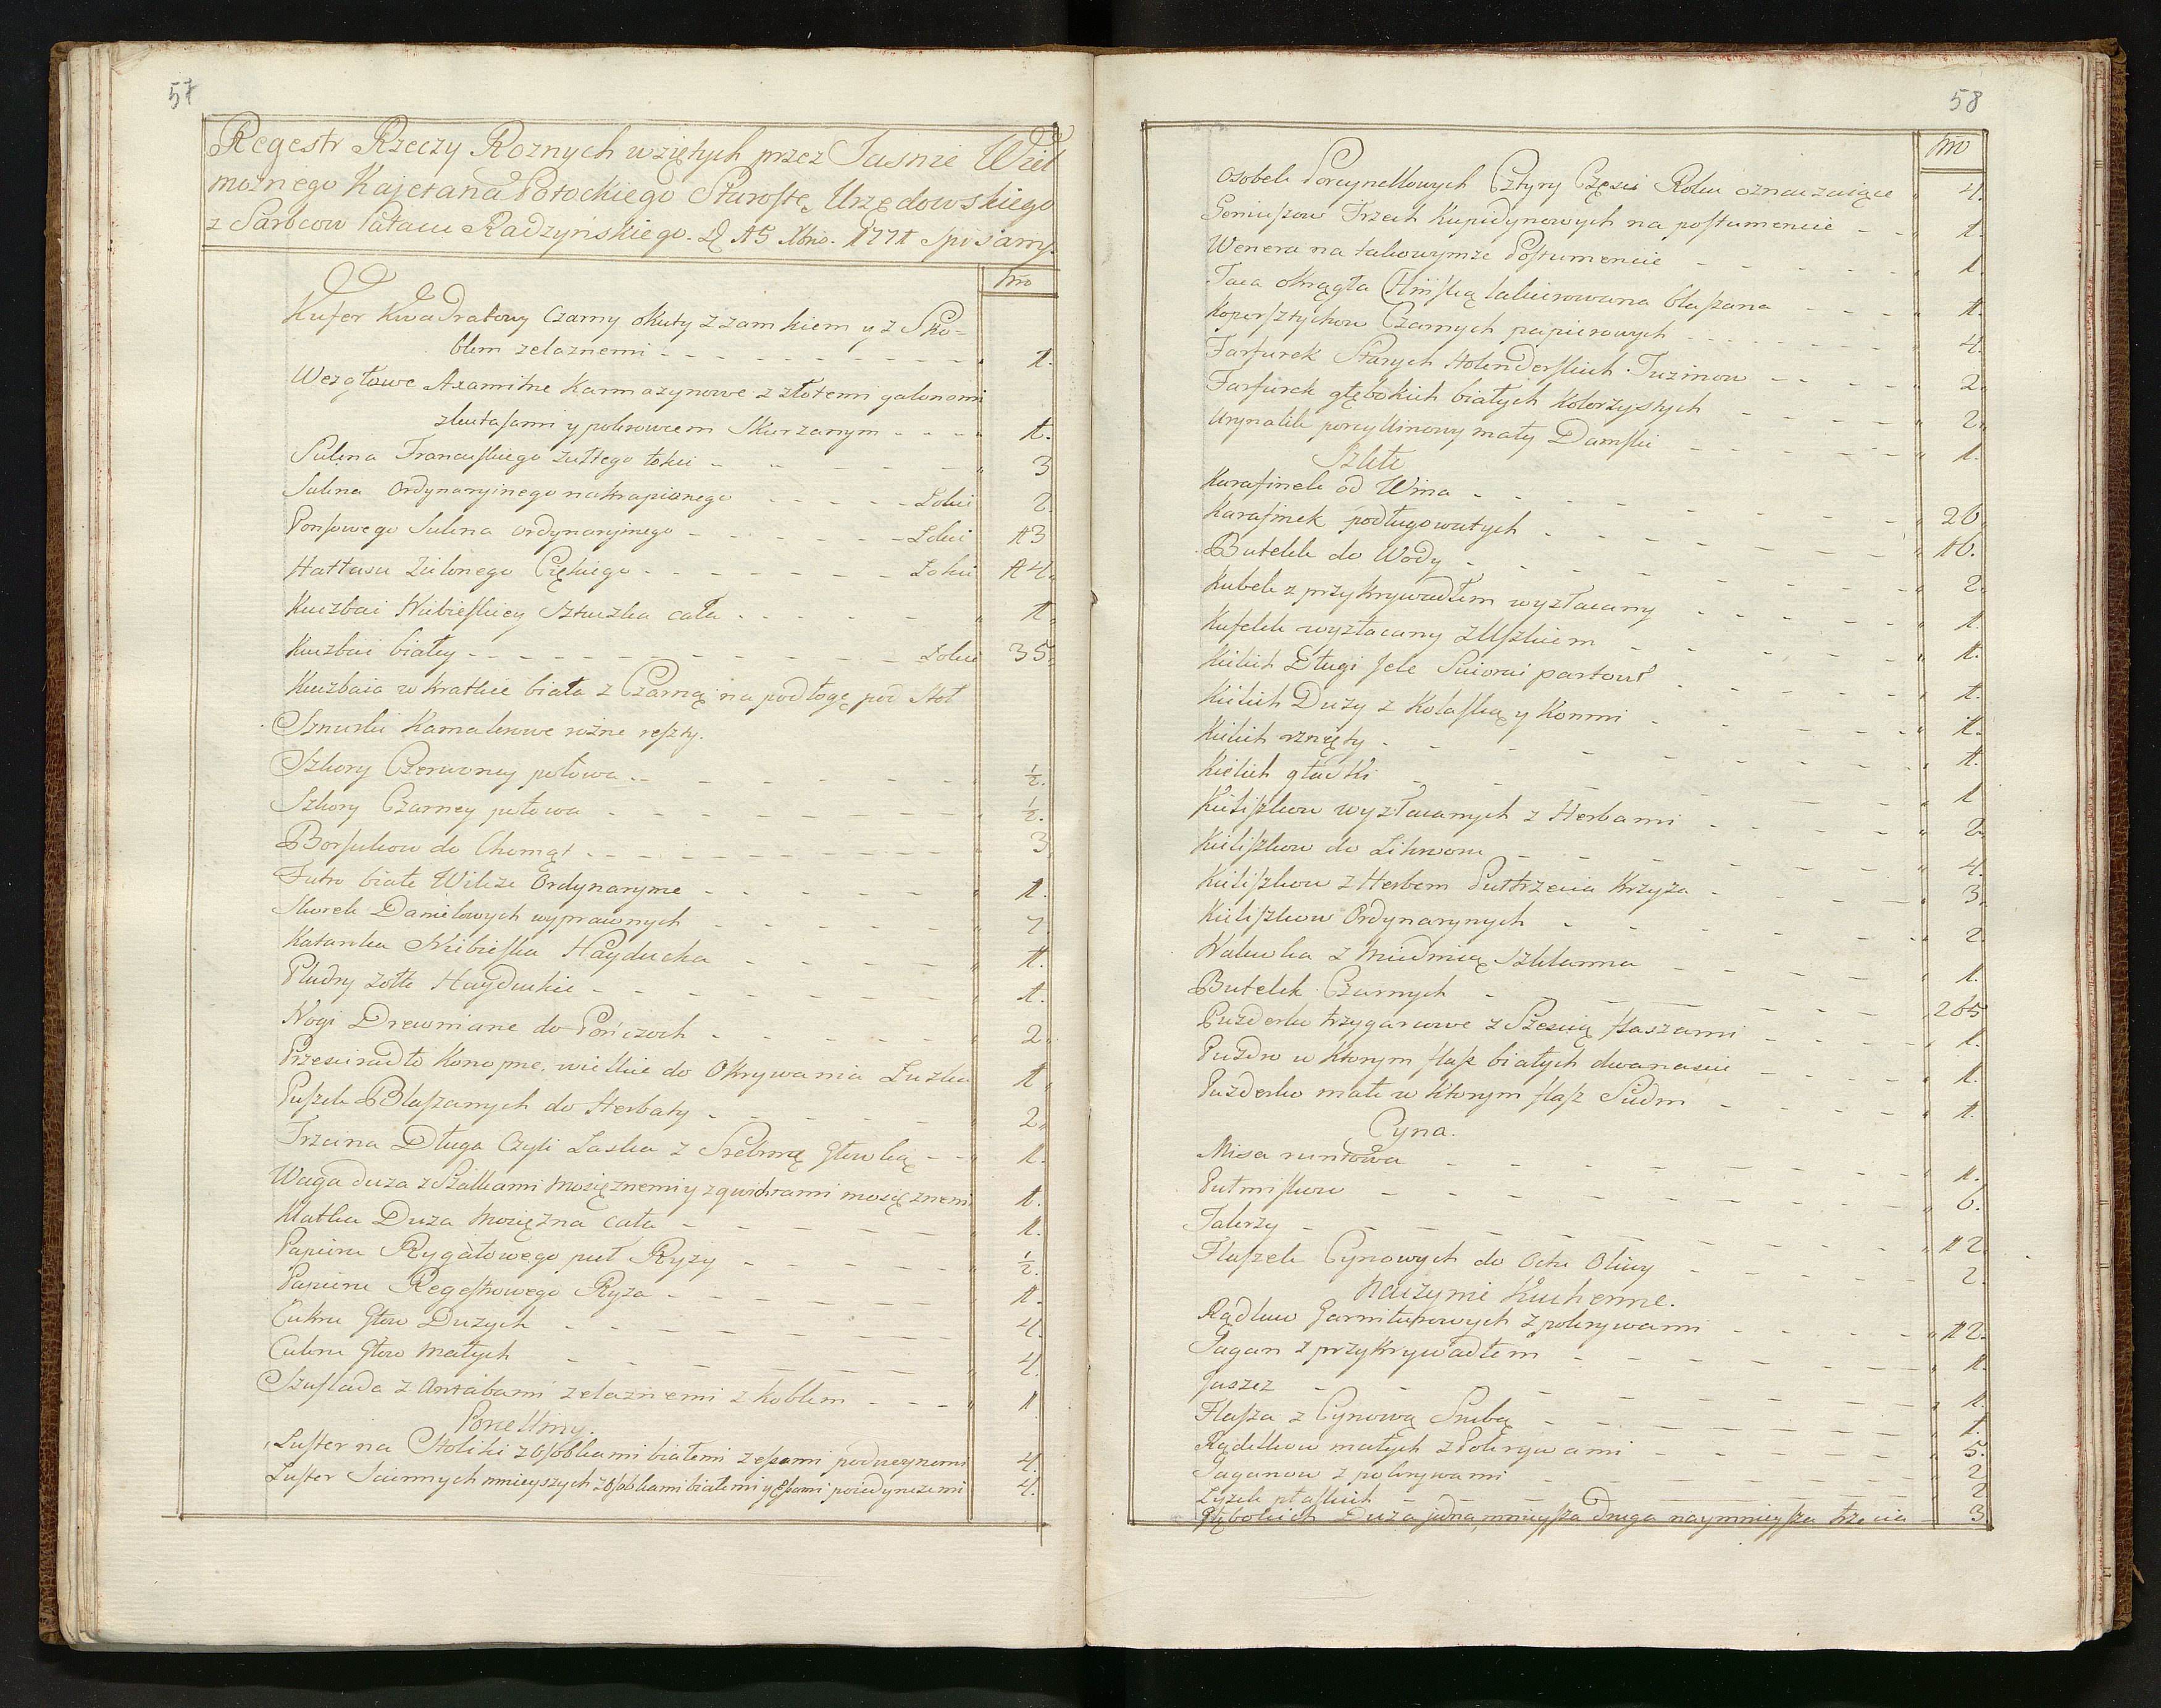 57
Regestr Rzeczy Roznych wziętych przez Jasnie Wiel
możnego Kajetana Potockiego Starostę Urzędowskiego
z Pałacu Radzyńskiego. D. 15 Xbris. 1771 spisany.
Nro
Kufer Kwadratowy Czarny okuty z zamkiem y z Sko-
blem zelaznemi 1.
Wezgłowe Axamitne Karmazynowe z złotemi galonami
zkutasami y pokrowcem Skurzanym 1.
Sukna Francuskiego zułtego łokci 3
Sukna Ordynaryinego nakrapianego Łokci 2
Ponsowego Sukna ordynaryinego Łokci 13
Hattasu Zielonego Cięzkiego Łokci 14.
Kuczbai Niebieskiey Sztuczka cała 1.
Kuczbai białey Łokci 35.
Kuczbaia w kratkie biała z Czarną na podłogę pod Stoł
Sznurki Kamakowe rożne reszty.
Skory Czerwoney połowa ½.
Skory Czarney połowa ½.
Borsukow do Chomąt 3
Futro białe Wilcze Ordynaryine 1.
Skorek Danielowych wyprawnych 7.
Katanka Niebieska Hayducka 1.
Pludry żołte Hayduckie 1.
Nogi Drewniane do Pończoch 2.
Przescieradło Konopne wielkie do Okrywania Łuzka 1.
Puszek Blaszanych do Herbaty 2.
Trzcina Długa Czyli Laska z Srebrną Głowką 1.
Waga duza z Szalkami Mosięznemi y z gwichtami mosięznemi 1.
Klatka Duza Mosięzna cała 1.
Papieru Rygałowego puł Ryzy ½.
Papieru Regestrowego Ryza 1.
Cukru Głow Duzych 4.
Cukru Głow Małych 4.
Szuflada z Antabami zelaznemi z koblem 1
Porcelliny.
Luster na Stoliki z Osobkami białemi z esami podwoynemi 4.
Luster Sciennych mnieyszych z Osobkami białemi y Esami poiedynczemi 4.
58
Nro
Osobek Porcynellowych Cztyry Częsci Roku oznaczaiące 4.
Geniuszow Trzech Kupidynowych na postumencie 1.
Wenera na takowymze Postumencie 1.
Taca okrągła Chińską lakierowana blaszana 1.
Kopersztychow Czarnych papierowych 4.
Farfurek Starych Holenderskich Tuzinow 2.
Farfurek głębokich białych Kolorzystych 2.
Urynalik porcyllinowy mały Damski 1.
Szkło
Karafinek od Wina 26
Karafinek podługowatych 16.
Butelek do Wody 2.
Kubek z przykrywadłem wyzłacany 1.
Kufelek wyzłacany z Uszkiem 1.
Kielich Długi 1.
Kielich Duzy z Kolaską y Konmi 1.
Kielich rznięty 1.
Kielich gładki 1
Kieliszkow wyzłacanych z Herbami 2.
Kieliszkow do Likworu 4.
Kieliszkow z Herbem Pułtrzecia Krzyza 3.
Kieliszkow Ordynarynych 2.
Nalewka z Miednicą Szklanna 1.
Butelek Czarnych 265
Puzderko trzygarcowe z Szescią flaszami 1.
Puzdro w ktorym flasz białych dwanascie 1.
Puzderko małe w ktorym flasz Siedm 1.
Cyna.
Misa runtowa 1.
Pułmiskow 6.
Talerzy 12
Flaszek Cynowych do Octu Oliwy 2.
Naczynie Kuchenne.
Rądlow Garniturowych z pokrywami 12.
Sagan z przykrywadłem 1.
Juszez 1.
Flasza z Cynową Srubą 1.
Rądelkow małych z Pokrywami 5.
Saganow z pokrywami 2
Łyzek płaskich 2
Głębokich Duza jedna, mnieysza Druga naymnieysza trzecia 3